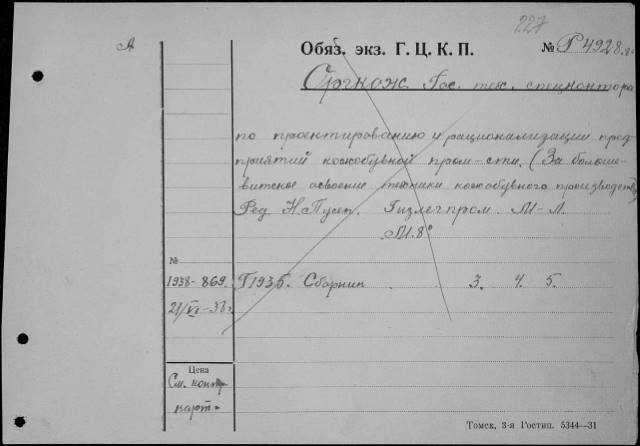 227
А
Обяз. экз. Г. Ц. К. П. № Р4928
Оргкож. Гос. тех. спецконтора
по проектированию и рационализации пред-
приятий кожобувной пром-сти. (За больше-
витское освоение техники кожобувного производства)
Ред. Н. Пусеп. Гизлегпром. М-Л.
М. 8°
№
1938-869. Г1935. Сборник 3. 4. 5.
21/VI-38 г.
Цена
См. контр.
карт.
Томск, 3-я Гостип. 5344—31